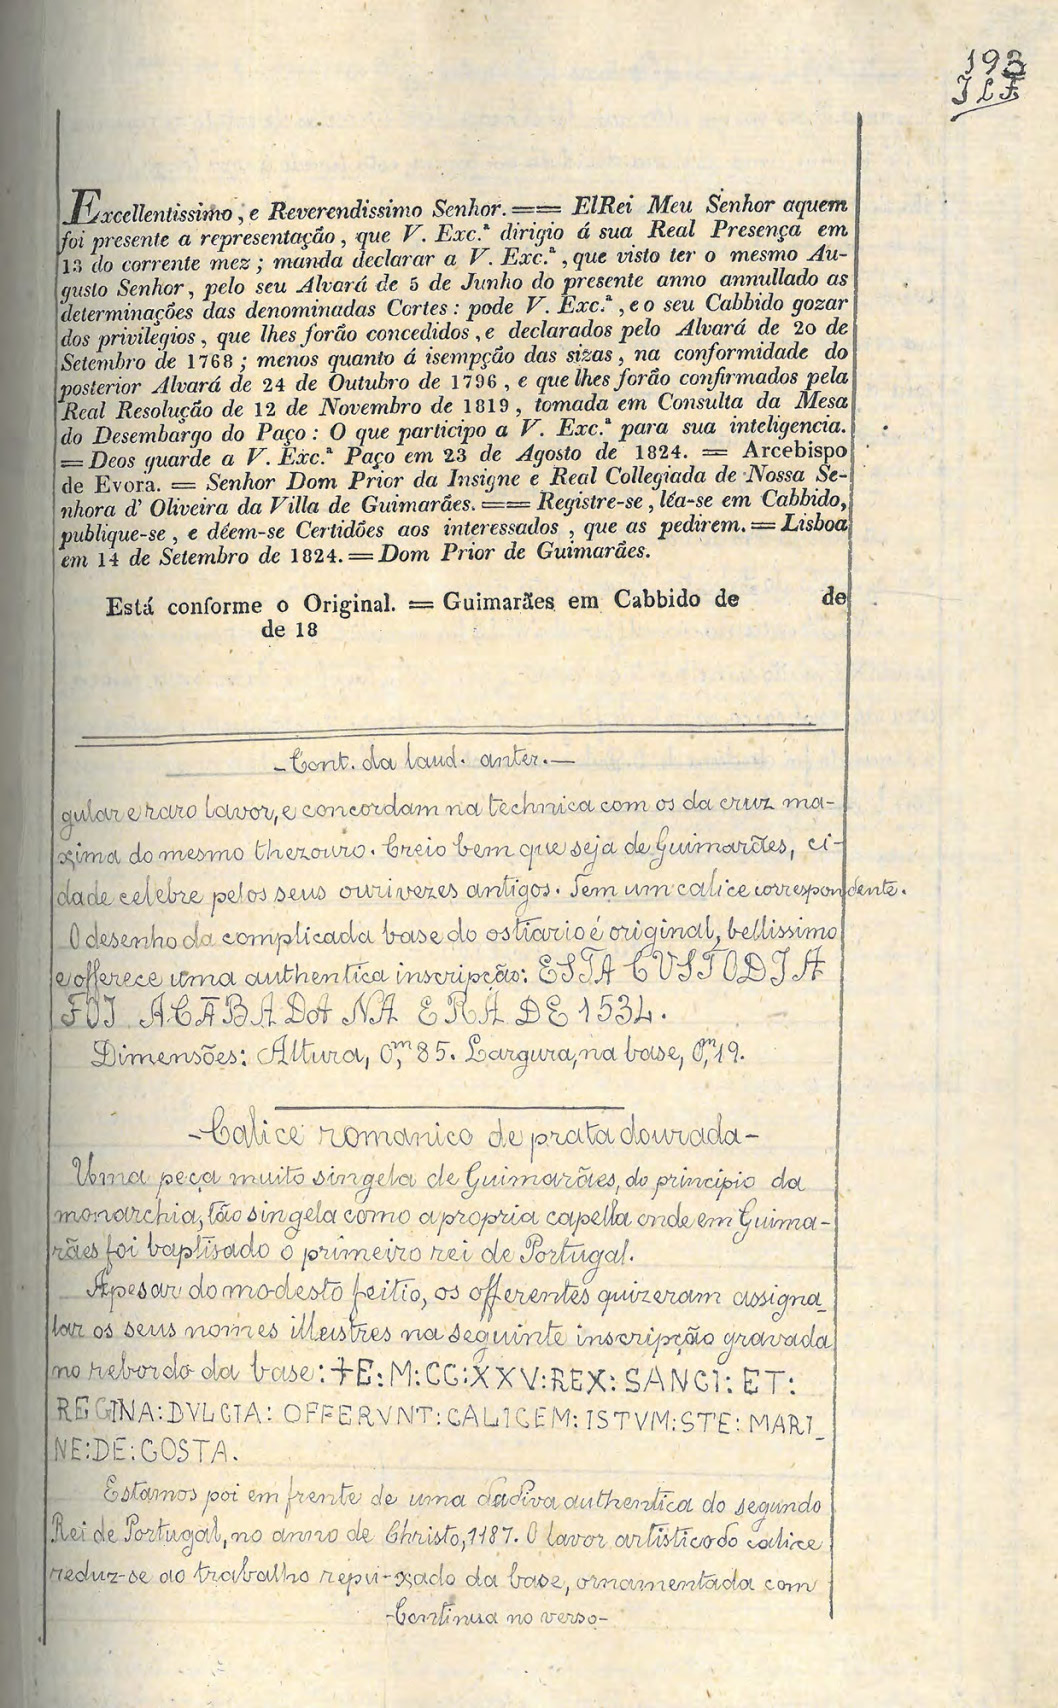 193
JLF
Excellentissimo, e Reverendissimo Senhor. == ElRei Meu Senhor aquem
foi presente a representação, que V. Exc.ª dirigio á sua Real Presença em
13 do corrente mez; manda declarar a V. Exc.ª, que visto ter o mesmo Au-
gusto Senhor, pelo seu Alvará de 5 de Junho do presente anno annullado as
determinações das denominadas Cortes: pode V. Exc.ª, e o seu Cabbido gozar
dos privilegios, que lhes forão concedidos, e declarados pelo Alvará de 20 de
Setembro de 1768; menos quanto á isempção das sizas, na conformidade do
posterior Alvará de 24 de Outubro de 1796, e que lhes forão confirmados pela
Real Resolução de 12 de Novembro de 1819, tomada em Consulta da Mesa
do Desembargo do Paço: O que participo a V. Exc.ª para sua inteligencia.
= Deos guarde a V. Exc.ª Paço em 23 de Agosto de 1824. = Arcebispo
de Evora. = Senhor Dom Prior da Insigne e Real Collegiada de Nossa Se-
nhora d' Oliveira da Villa de Guimarães. == Registre-se, léa-se em Cabbido,
publique-se, e déem-se Certidões aos interessados, que as pedirem. = Lisboa
em 14 de Setembro de 1824. = Dom Prior de Guimarães.
Está conforme o Original. = Guimarães em Cabbido de de
de 18
- Cont. da laud. anter. -
gular e raro lavor, e concordam na technica com os da cruz ma-
xima do mesmo thezouro. Creio bem que seja de Guimarães, ci-
dade celebre pelos seus ourivezes antigos. Tem um calice correspondente.
O desenho da complicada base do ostiario é original, bellissimo
e offerece uma authentica inscripção: ESTA CVSTODIA
FOI ACABADA NA ERA DE 1534.
Dimensões: Altura, 0,m85. Largura, na base, 0,m19.
- Calice romanico de prata dourada -
Uma peça muito singela de Guimarães, do principio da
monarchia, tão singela como a propria capella onde em Guima-
rães foi baptisado o primeiro rei de Portugal.
Apesar do modesto feitio, os offerentes quizeram assigna-
lar os seus nomes illustres na seguinte inscripção gravada
no rebordo da base: +E: M: CC: XXV: REX: SANCI: ET:
REGINA: DVLCIA: OFFERVNT: CALICEM: ISTVM: STE: MARI-
NE: DE: COSTA.
Estamos poi em frente de uma dadiva authentica do segundo
Rei de Portugal, no anno de Christo, 1187. O lavor artistico do calice
reduz-se ao trabalho repu-xado da base, ornamentada com
- Continua no verso -